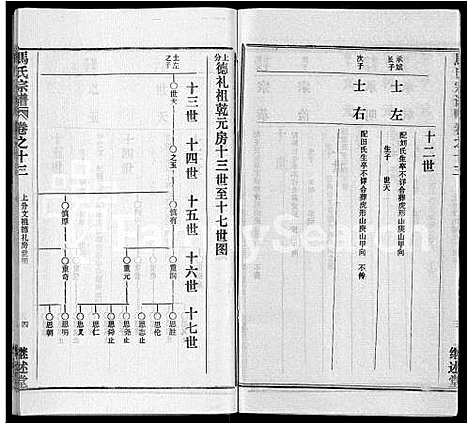 十二世
承斌
长子
士左
配刘氏生卒不详合葬虎形山庚山甲向
生子 世天
次子
士右
配田氏生卒不详合葬虎形山庚山甲向 不传
继述堂
上分德礼祖乾元房十三世至十七世图
十三世 十四世 十五世 十六世 十七世
士左
之子
世天
之玉
慎有
慎即
重润
重元
重奇
思胜
思伦
思志止
思尧止
思仁
思义
思明
思朝
馬氏宗谱
卷之十三
上分文祖德礼房
四
继述堂